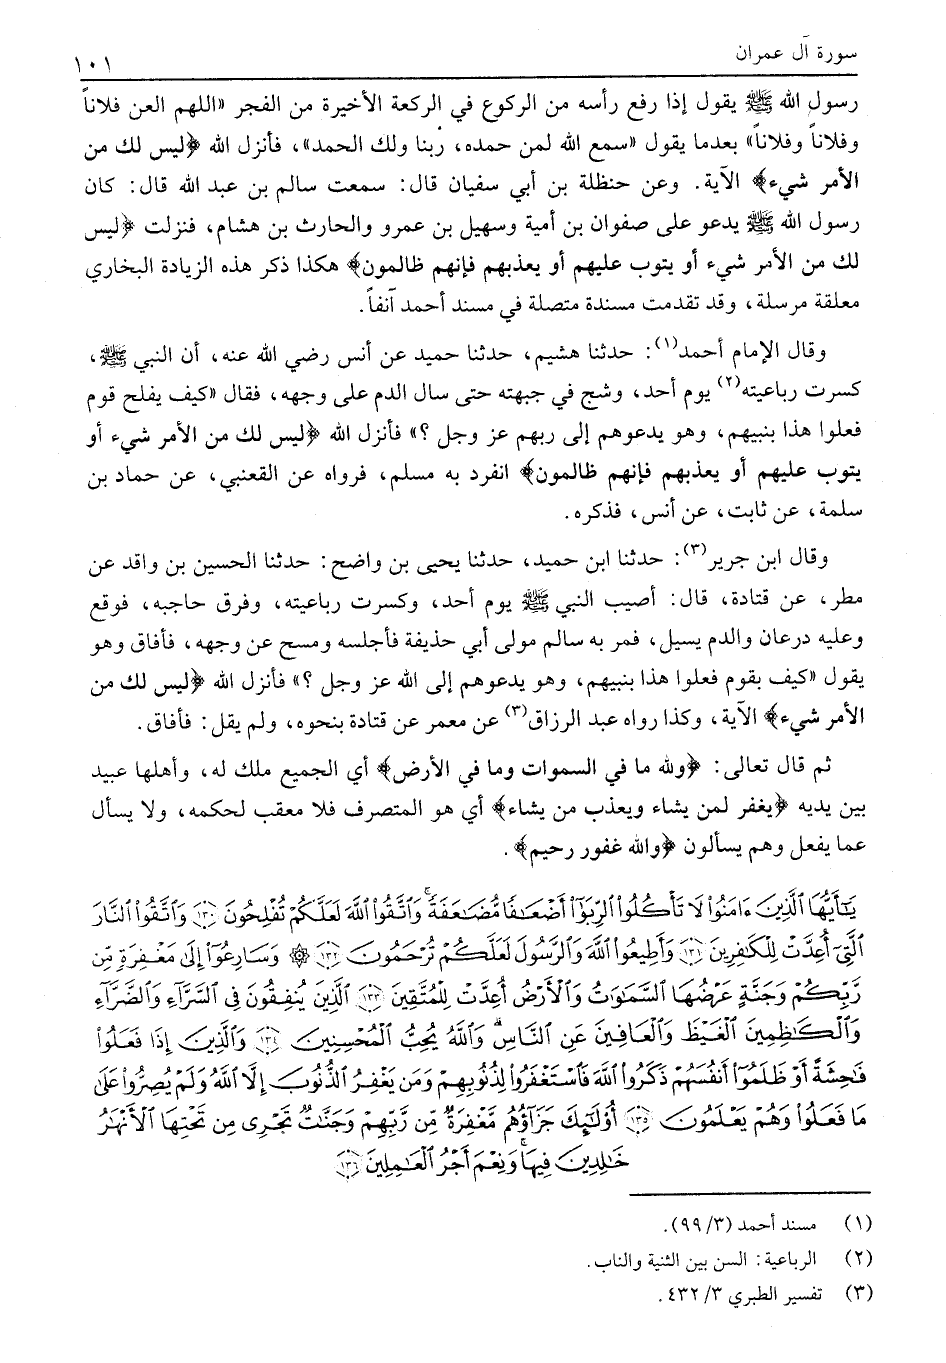 سورة آل عمران
١٠١
رسول الله ﷺ يقول إذا رفع رأسه من الركوع في الركعة الأخيرة من الفجر «اللهم العن فلاناً
وفلاناً وفلاناً» بعدما يقول «سمع الله لمن حمده، ربنا ولك الحمد»، فأنزل الله ﴿ليس لك من
الأمر شيء﴾ الآية. وعن حنظلة بن أبي سفيان قال: سمعت سالم بن عبد الله قال: كان
رسول الله ﷺ يدعو على صفوان بن أمية وسهيل بن عمرو والحارث بن هشام، فنزلت ﴿ليس
لك من الأمر شيء أو يتوب عليهم أو يعذبهم فإنهم ظالمون﴾ هكذا ذكر هذه الزيادة البخاري
معلقة مرسلة، وقد تقدمت مسندة متصلة في مسند أحمد آنفاً.
وقال الإمام أحمد(١): حدثنا هشيم، حدثنا حميد عن أنس رضي الله عنه، أن النبي ﷺ،
كسرت رباعيته(٢) يوم أحد، وشج في جبهته حتى سال الدم على وجهه، فقال «كيف يفلح قوم
فعلوا هذا بنبيهم، وهو يدعوهم إلى ربهم عز وجل ؟» فأنزل الله ﴿ليس لك من الأمر شيء أو
يتوب عليهم أو يعذبهم فإنهم ظالمون﴾ انفرد به مسلم، فرواه عن القعنبي، عن حماد بن
سلمة، عن ثابت، عن أنس، فذكره.
وقال ابن جرير(٣): حدثنا ابن حميد، حدثنا يحيى بن واضح: حدثنا الحسين بن واقد عن
مطر، عن قتادة، قال: أصيب النبي ﷺ يوم أحد، وكسرت رباعيته، وفرق حاجبه، فوقع
وعليه درعان والدم يسيل، فمر به سالم مولى أبي حذيفة فأجلسه ومسح عن وجهه، فأفاق وهو
يقول «كيف بقوم فعلوا هذا بنبيهم، وهو يدعوهم إلى الله عز وجل ؟» فأنزل الله ﴿ليس لك من
الأمر شيء﴾ الآية، وكذا رواه عبد الرزاق(٣) عن معمر عن قتادة بنحوه، ولم يقل: فأفاق.
ثم قال تعالى: ﴿ولله ما في السموات وما في الأرض﴾ أي الجميع ملك له، وأهلها عبيد
بين يديه ﴿يغفر لمن يشاء ويعذب من يشاء﴾ أي هو المتصرف فلا معقب لحكمه، ولا يسأل
عما يفعل وهم يسألون ﴿والله غفور رحيم﴾.
يَٰٓأَيُّهَا ٱلَّذِينَ ءَامَنُوا۟ لَا تَأْكُلُوا۟ ٱلرِّبَوٰٓا۟ أَضْعَٰفًا مُّضَٰعَفَةً ۖ وَٱتَّقُوا۟ ٱللَّهَ لَعَلَّكُمْ تُفْلِحُونَ ١٣٠ وَٱتَّقُوا۟ ٱلنَّارَ
ٱلَّتِىٓ أُعِدَّتْ لِلْكَٰفِرِينَ ١٣١ وَأَطِيعُوا۟ ٱللَّهَ وَٱلرَّسُولَ لَعَلَّكُمْ تُرْحَمُونَ ١٣٢ ۞ وَسَارِعُوٓا۟ إِلَىٰ مَغْفِرَةٍ مِّن
رَّبِّكُمْ وَجَنَّةٍ عَرْضُهَا ٱلسَّمَٰوَٰتُ وَٱلْأَرْضُ أُعِدَّتْ لِلْمُتَّقِينَ ١٣٣ ٱلَّذِينَ يُنفِقُونَ فِى ٱلسَّرَّآءِ وَٱلضَّرَّآءِ
وَٱلْكَٰظِمِينَ ٱلْغَيْظَ وَٱلْعَافِينَ عَنِ ٱلنَّاسِ ۗ وَٱللَّهُ يُحِبُّ ٱلْمُحْسِنِينَ ١٣٤ وَٱلَّذِينَ إِذَا فَعَلُوا۟
فَٰحِشَةً أَوْ ظَلَمُوٓا۟ أَنفُسَهُمْ ذَكَرُوا۟ ٱللَّهَ فَٱسْتَغْفَرُوا۟ لِذُنُوبِهِمْ وَمَن يَغْفِرُ ٱلذُّنُوبَ إِلَّا ٱللَّهُ وَلَمْ يُصِرُّوا۟ عَلَىٰ
مَا فَعَلُوا۟ وَهُمْ يَعْلَمُونَ ١٣٥ أُو۟لَٰٓئِكَ جَزَآؤُهُم مَّغْفِرَةٌ مِّن رَّبِّهِمْ وَجَنَّٰتٌ تَجْرِى مِن تَحْتِهَا ٱلْأَنْهَٰرُ
خَٰلِدِينَ فِيهَا ۚ وَنِعْمَ أَجْرُ ٱلْعَٰمِلِينَ ١٣٦
(١) مسند أحمد (٣/ ٩٩).
(٢) الرباعية: السن بين الثنية والناب.
(٣) تفسير الطبري ٣/ ٤٣٢.